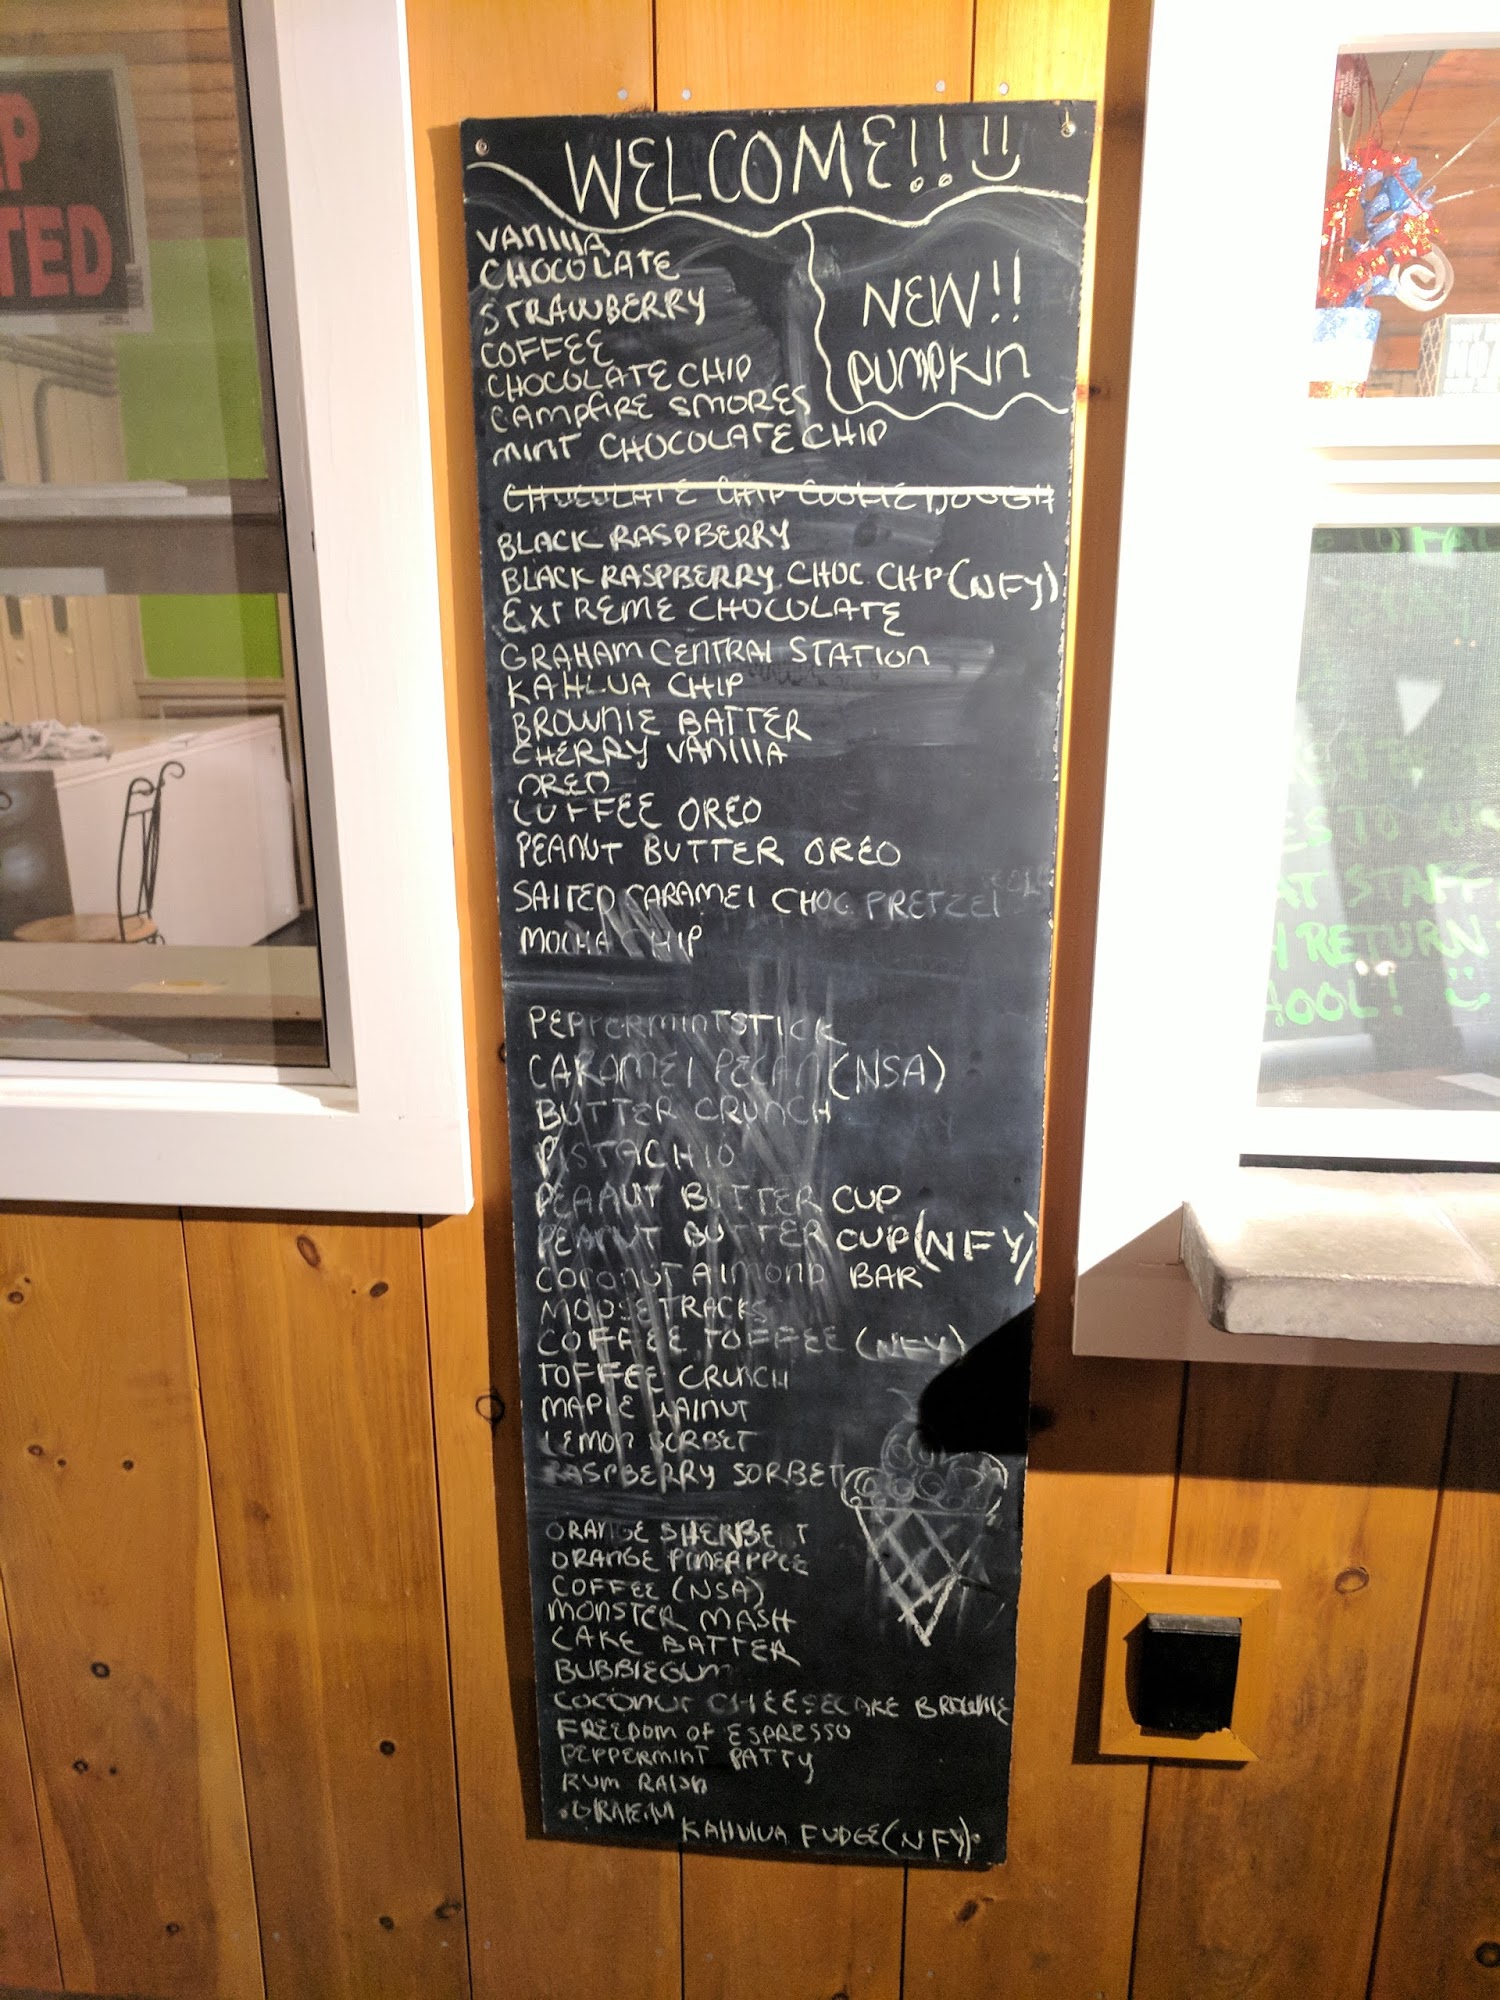 WELCOME!!
VANIllA
CHOCOLATE
STRAWBERRY
COFFEE
CHOCOLATE CHIP
CAMPFIRE SMORES
MINT CHOCOLATE CHIP
NEW!!
PUMPKIN
CHOCOLATE CHIP COOKIE DOUGH
BLACK RASPBERRY
BLACK RASPBERRY CHOC CHP (NFY)
EXTREME CHOCOLATE
GRAHAM CENTRAl STATION
KAHLUA CHIP
BROWNIE BATTER
CHERRY VANIllA
OREO
COFFEE OREO
PEANUT BUTTER OREO
SAlTED CARAMEl CHOC PRETZEl
MOCHA CHIP
PEPPERMINT STICK
CARAMEl PECAN (NSA)
BUTTER CRUNCH
PISTACHIO
PEANUT BUTTER CUP
PEANUT BUTTER CUP (NFY)
COCONUT AlMOND BAR
MOOSETRACKS
COFFEE TOFFEE (NFY)
TOFFEE CRUNCH
MAPlE WAlNUT
LEMON SORBET
RASPBERRY SORBET
ORANGE SHERBET
ORANGE PINEAPPLE
COFFEE (NSA)
MONSTER MASH
CAKE BATTER
BUBBlEGUM
COCONUT CHEESECAKE BROWNIE
FREEDOM OF ESPRESSO
PEPPERMINT PATTY
RUM RAISIN
KAHULUA FUDGE (NFY)
TED
STAFF
RETURN